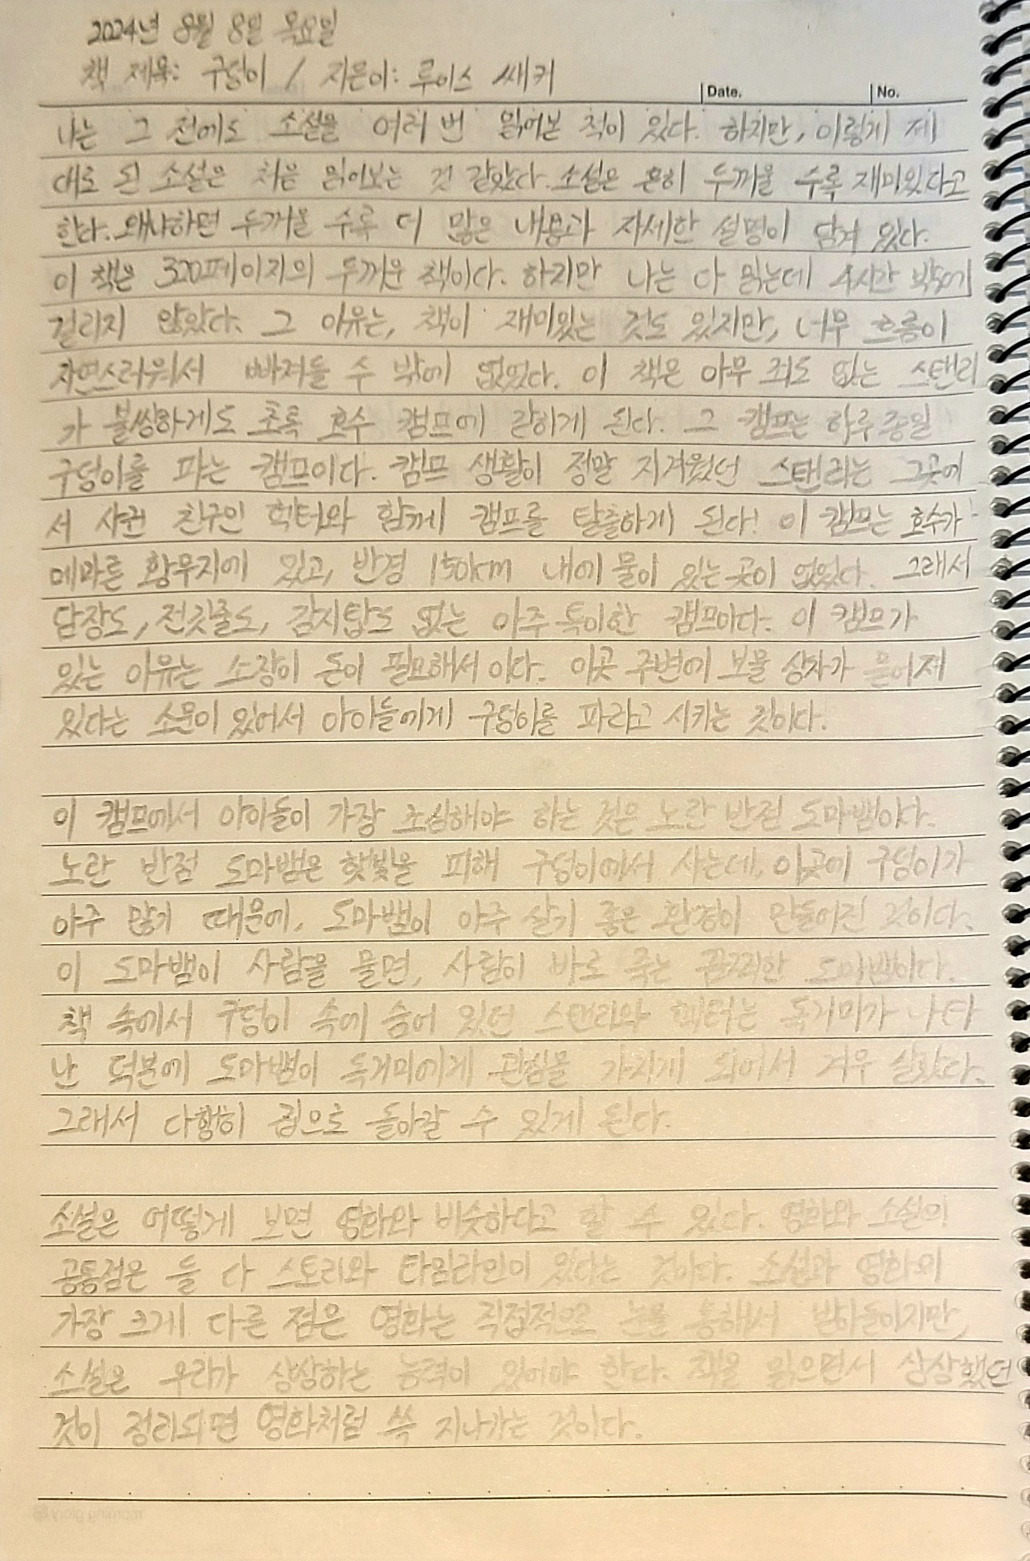 2024년 8월 8일 목요일
책 제목: 구덩이 / 지은이: 루이스 쌔커
Date.
No.
나는 그 전에도 소설을 여러 번 읽어본 적이 있다. 하지만, 이렇게 제
대로 된 소설은 처음 읽어보는 것 같았다. 소설은 흔히 두꺼울 수록 재미있다고
한다. 왜냐하면 두꺼울 수록 더 많은 내용과 자세한 설명이 담겨 있다.
이 책은 320페이지의 두꺼운 책이다. 하지만 나는 다 읽는데 4시간 밖에
걸리지 않았다. 그 이유는, 책이 재미있는 것도 있지만, 너무 흐름이
자연스러워서 빠져들 수 밖에 없었다. 이 책은 아무 죄도 없는 스탠리
가 불쌍하게도 초록 호수 캠프에 갇히게 된다. 그 캠프는 하루 종일
구덩이를 파는 캠프이다. 캠프 생활이 정말 지겨웠던 스탠리는 그곳에
서 사귄 친구인 헥터와 함께 캠프를 탈출하게 된다! 이 캠프는 호수가
메마른 황무지에 있고, 반경 150km 내에 물이 있는 곳이 없었다. 그래서
담장도, 전깃줄도, 감시탑도 없는 아주 특이한 캠프이다. 이 캠프가
있는 이유는 소장이 돈이 필요해서 이다. 이곳 주변에 보물 상자가 묻어져
있다는 소문이 있어서 아이들에게 구덩이를 파라고 시키는 것이다.
이 캠프에서 아이들이 가장 조심해야 하는 것은 노란 반점 도마뱀이다.
노란 반점 도마뱀은 햇빛을 피해 구덩이에서 사는데, 이곳에 구덩이가
아주 많기 때문에, 도마뱀이 아주 살기 좋은 환경이 만들어진 것이다.
이 도마뱀이 사람을 물면, 사람이 바로 죽는 끔찍한 도마뱀이다.
책 속에서 구덩이 속에 숨어 있던 스탠리와 헥터는 독거미가 나타
난 덕분에 도마뱀이 독거미에게 관심을 가지게 되어서 겨우 살았다.
그래서 다행히 집으로 돌아갈 수 있게 된다.
소설은 어떻게 보면 영화와 비슷하다고 할 수 있다. 영화와 소설의
공통점은 둘 다 스토리와 타임라인이 있다는 것이다. 소설과 영화의
가장 크게 다른 점은 영화는 직접적으로 눈을 통해서 받아들이지만,
소설은 우리가 상상하는 능력이 있어야 한다. 책을 읽으면서 상상했던
것이 정리되면 영화처럼 쓱 지나가는 것이다.
morning glory